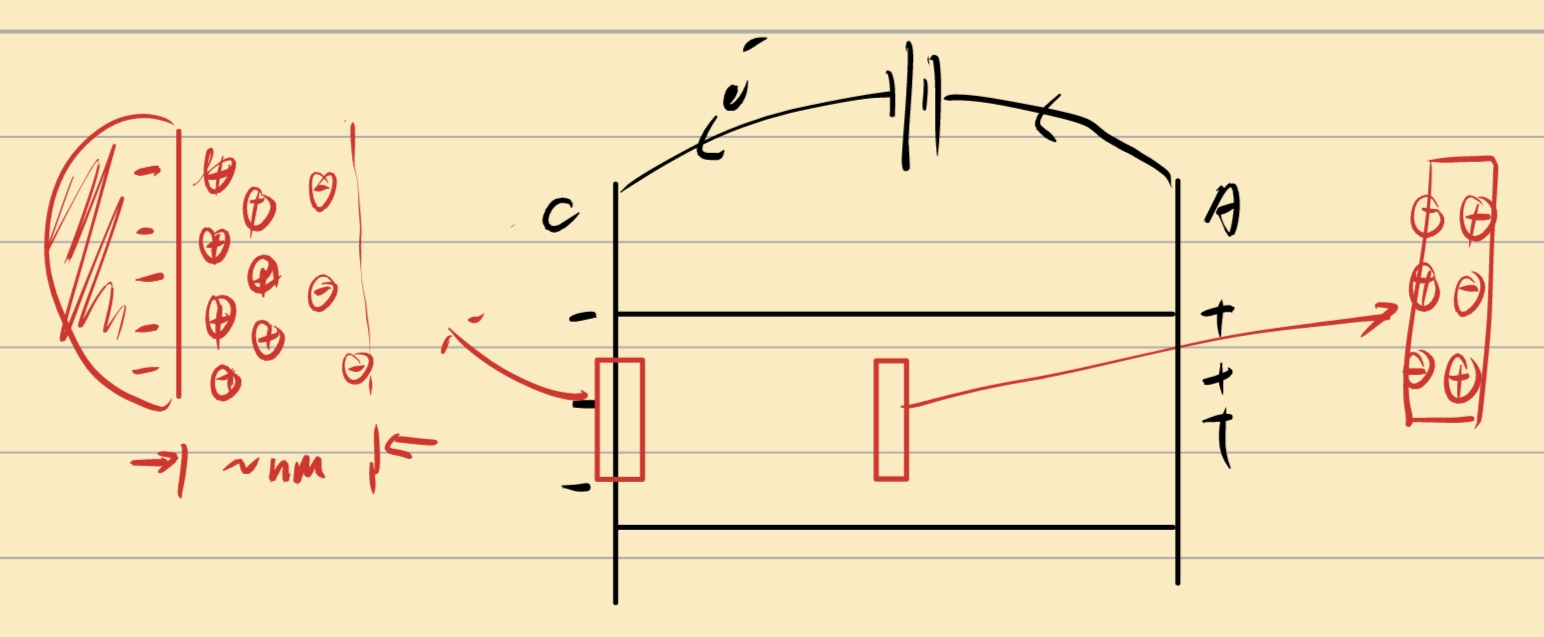 e⁻
C
A
- + + + -
- + -
- + +
- + -
- +
-
-
-
+
+
+
- +
+ -
- +
~nm